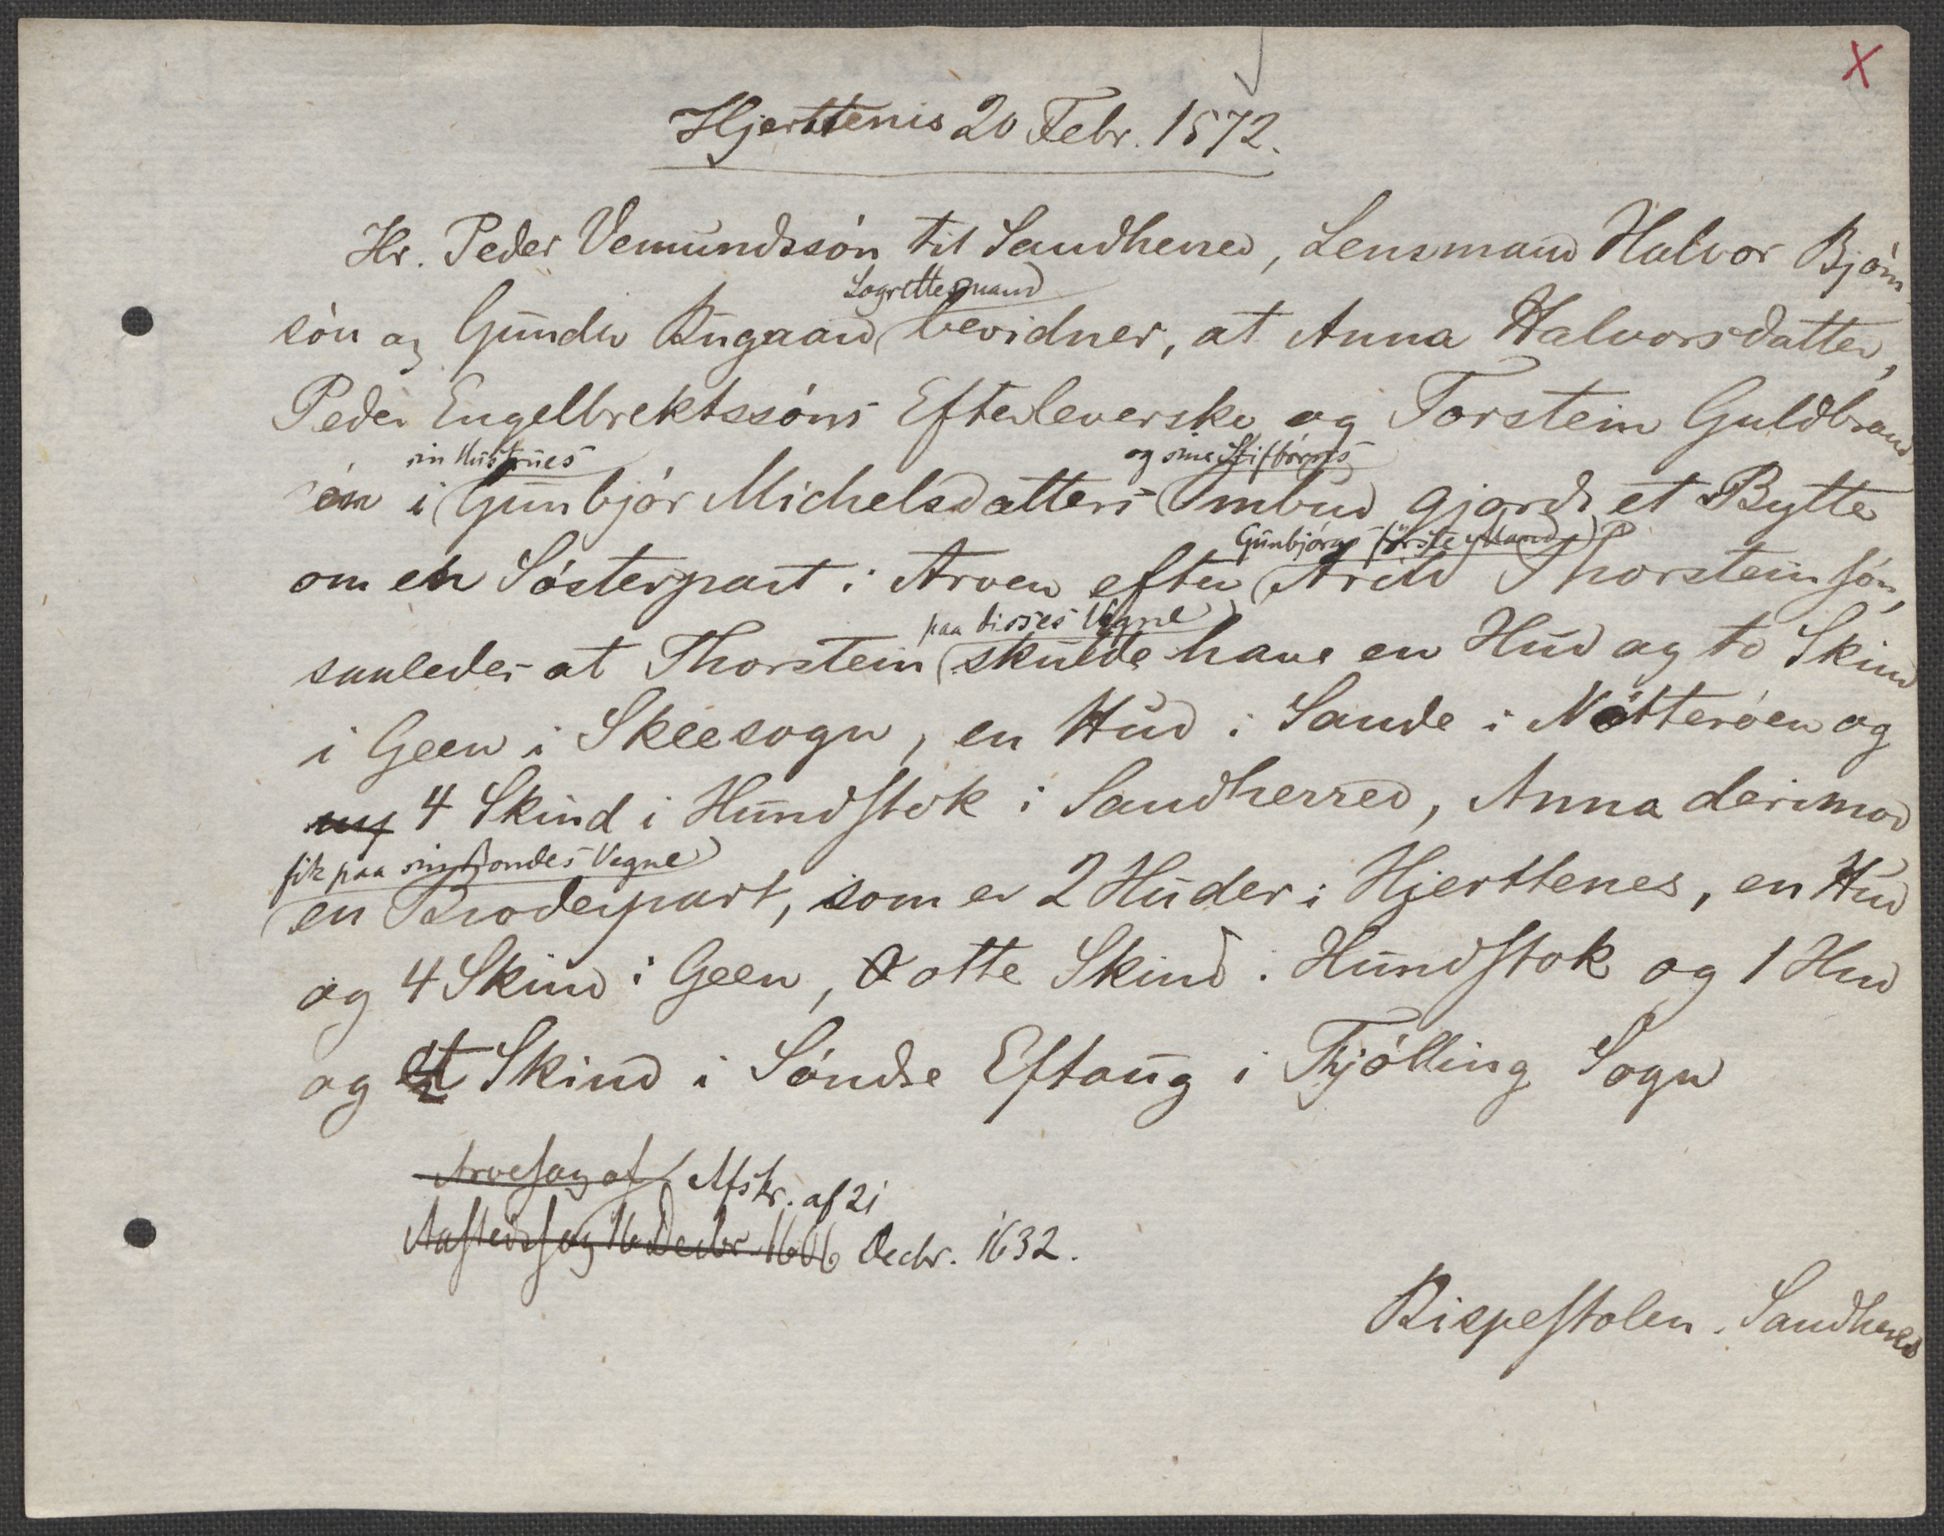 X
Hjerttenis 20 Febr. 1572.
Hr. Peder Vemundssön til Sandherred, Lensmand Halvor Bjørn
Lagrettesmand
sön og Gunder Rugaard bevidner, at Anna Halvorsdatter,
Peder Engelbrektssöns Efterleverske og Torstein Guldbrand
sin Hustrues og sine Stifbørns
sön i Gunbjör Michelsdatters Ombud gjorde et Bytte
Gunbjörgs förste Mand
om en Sösterpart i Arven efter Arild Thorsteinsön,
paa disses Vegne
saaledes at Thorstein skulde have en Hud og to Skind
i Geen i Skeesogn, en Hud i Sande i Nötteröen og
4 Skind i Hundstok i Sandherred, Anna derimod
fik paa sin Bondes Vegne
en Broderpart, som er 2 Huder i Hjerttenes, en Hud
og 4 Skind i Geen, otte Skind i Hundstok og 1 Hud
og et Skind i Söndre Eftang i Tjölling Sogn
Arvesag af Afskr. af 21
Aastedssag 16 Decbr 1606 Decbr. 1632.
Bispestolen. Sandherred